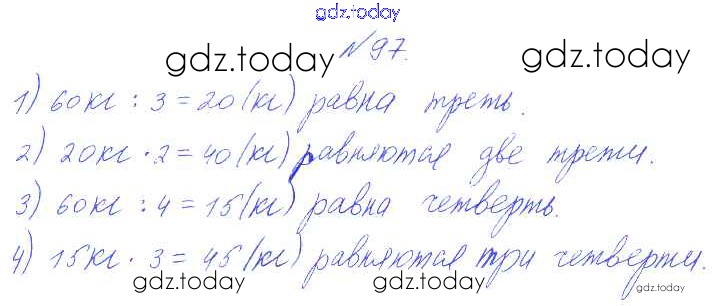 gdz.today
gdz.today №97. gdz.today
1) 60кг : 3 = 20 (кг) равна треть.
2) 20кг · 2 = 40 (кг) равняются две трети.
3) 60кг : 4 = 15 (кг) равна четверть.
4) 15кг · 3 = 45 (кг) равняются три четверти.
gdz.today gdz.today gdz.today